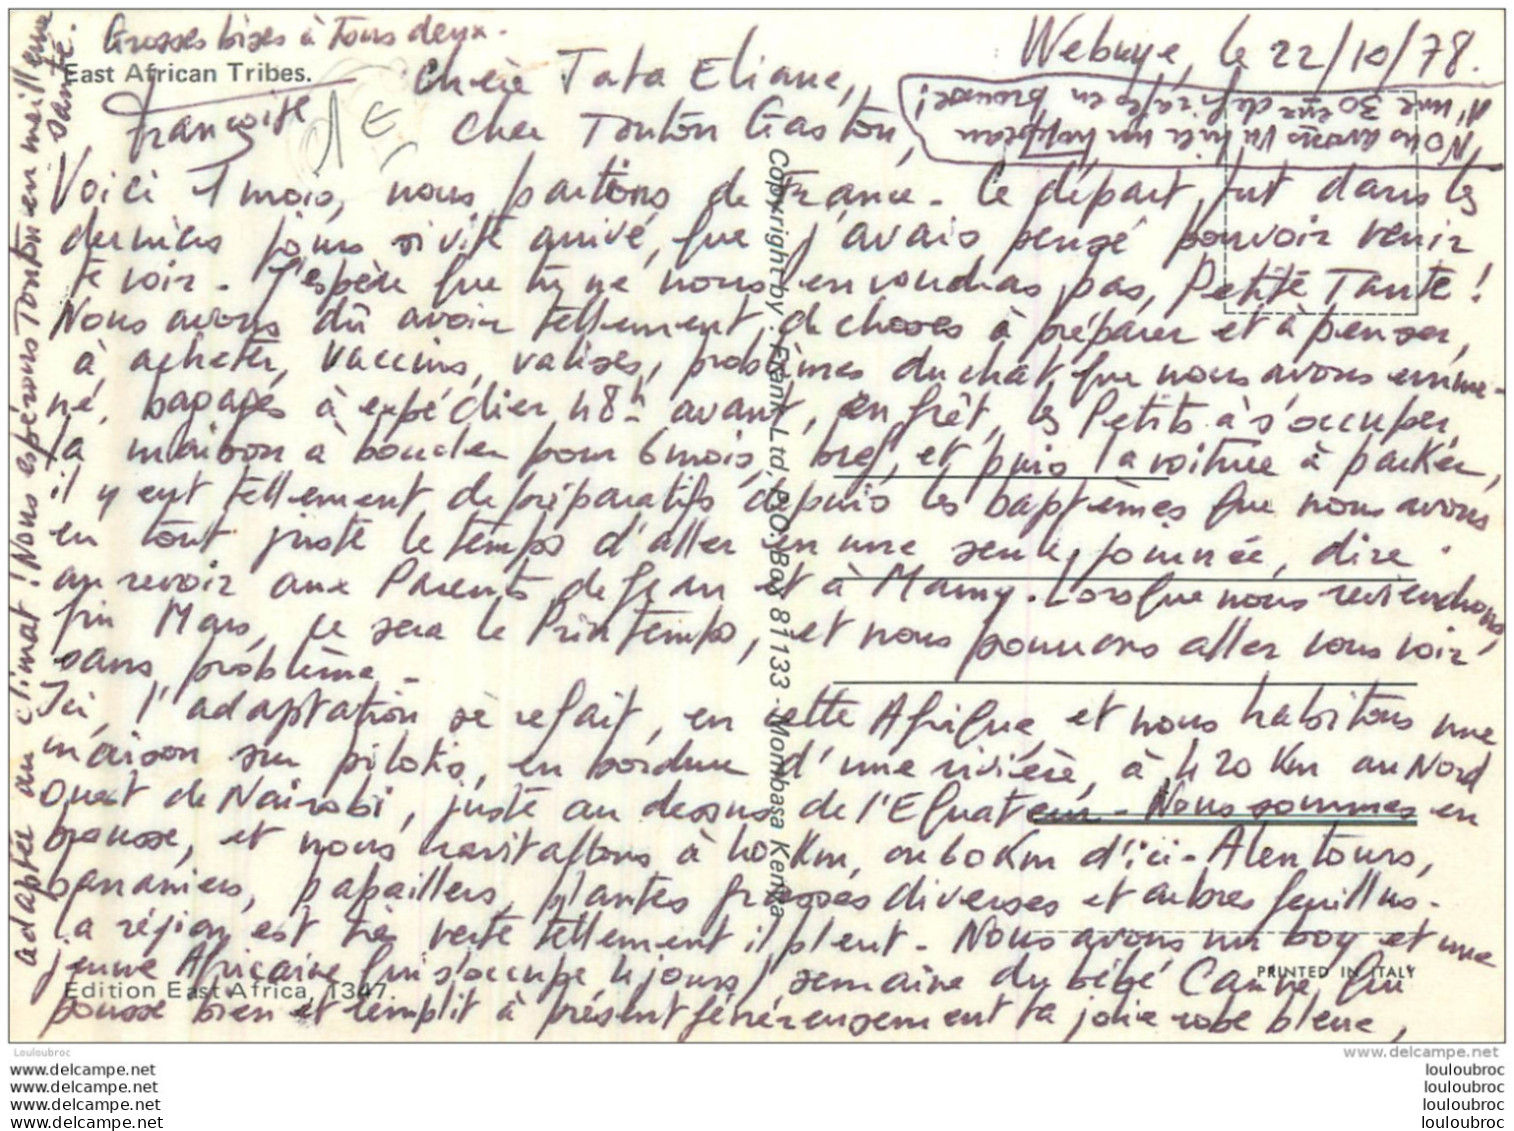 Webuye, le 22/10/78.
East African Tribes.
Chère Tata Eliane,
Cher Tonton Gaston,
Voici 1 mois, nous partions de France. Le départ fut dans les
derniers jours si vite arrivé, que j'avais pensé pouvoir venir
te voir. J'espère que tu ne nous en voudras pas, Petite Tante !
Nous avons dû avoir tellement de choses à préparer et à penser,
à acheter, vaccins, valises, problèmes du chat que nous avons emme-
né, bagages à expédier 48h avant, en frêt, les Petits à s'occuper,
la maison à boucler pour 6 mois, bref, et puis la voiture à parker,
il y eut tellement de préparatifs depuis les baptêmes que nous avons
eu tout juste le temps d'aller en une seule journée, dire
au revoir aux Parents de Jean et à Mamy. Lorsque nous reviendrons,
fin Mars, ce sera le Printemps, et nous pourrons aller vous voir
sans problème.
Ici, l'adaptation se refait, en cette Afrique et nous habitons une
maison sur pilotis, en bordure d'une rivière, à 420 Km au Nord
Ouest de Nairobi, juste au dessus de l'Equateur. Nous sommes en
brousse, et nous ravitaillons à 40 Km, ou 60 Km d'ici. Alentours,
bananiers, papaillers, plantes grasses diverses et arbres feuillus.
La région est très verte tellement il pleut. Nous avons un boy et une
jeune Africaine qui s'occupe 4 jours / semaine du bébé Carine qui
pousse bien et remplit à présent généreusement ta jolie robe bleue,
adaptée au climat ! Nous espérons Tonton en meilleure
santé.
Grosses bises à Tous deux.
Françoise
Nous avons vu hier un hippopotam
à une 30ène de km en brousse !
Copyright by Elant Ltd, P.O. Box 81133 Mombasa Kenya
Edition East Africa, 1347
PRINTED IN ITALY
Louloubroc
www.delcampe.net
www.delcampe.net
www.delcampe.net
www.delcampe.net
www.delcampe.net
louloubroc
louloubroc
louloubroc
louloubroc